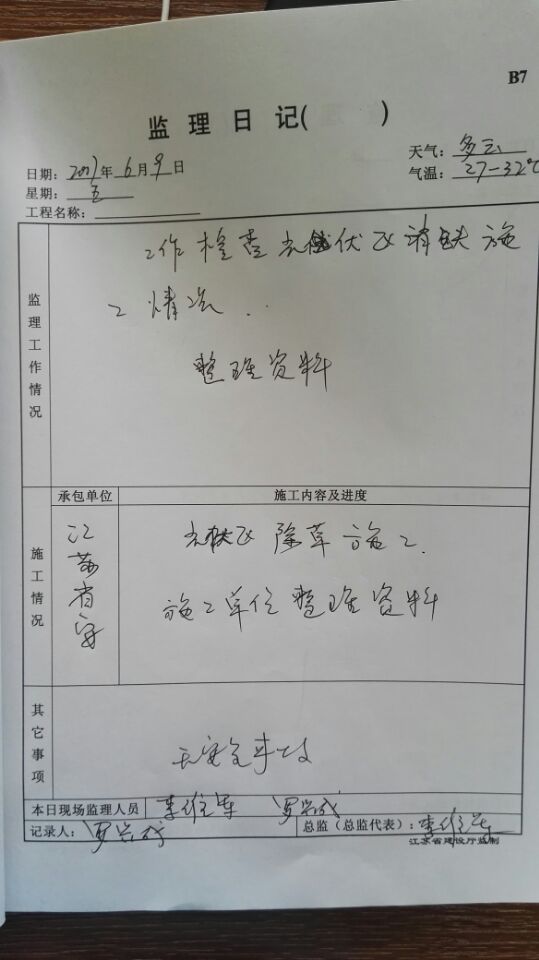 B7
监理日记( )
日期: 2017年6月9日
天气: 多云
星期: 五
气温: 27-32℃
工程名称:
监理工作情况
工作检查 伏及消缺施
工情况.
整理资料
承包单位
施工内容及进度
施工情况
江苏省安
除草施工.
施工单位整理资料
其它事项
无安全事故
本日现场监理人员 李维军 罗兴成
记录人: 罗兴成
总监(总监代表): 李维军
江苏省建设厅监制